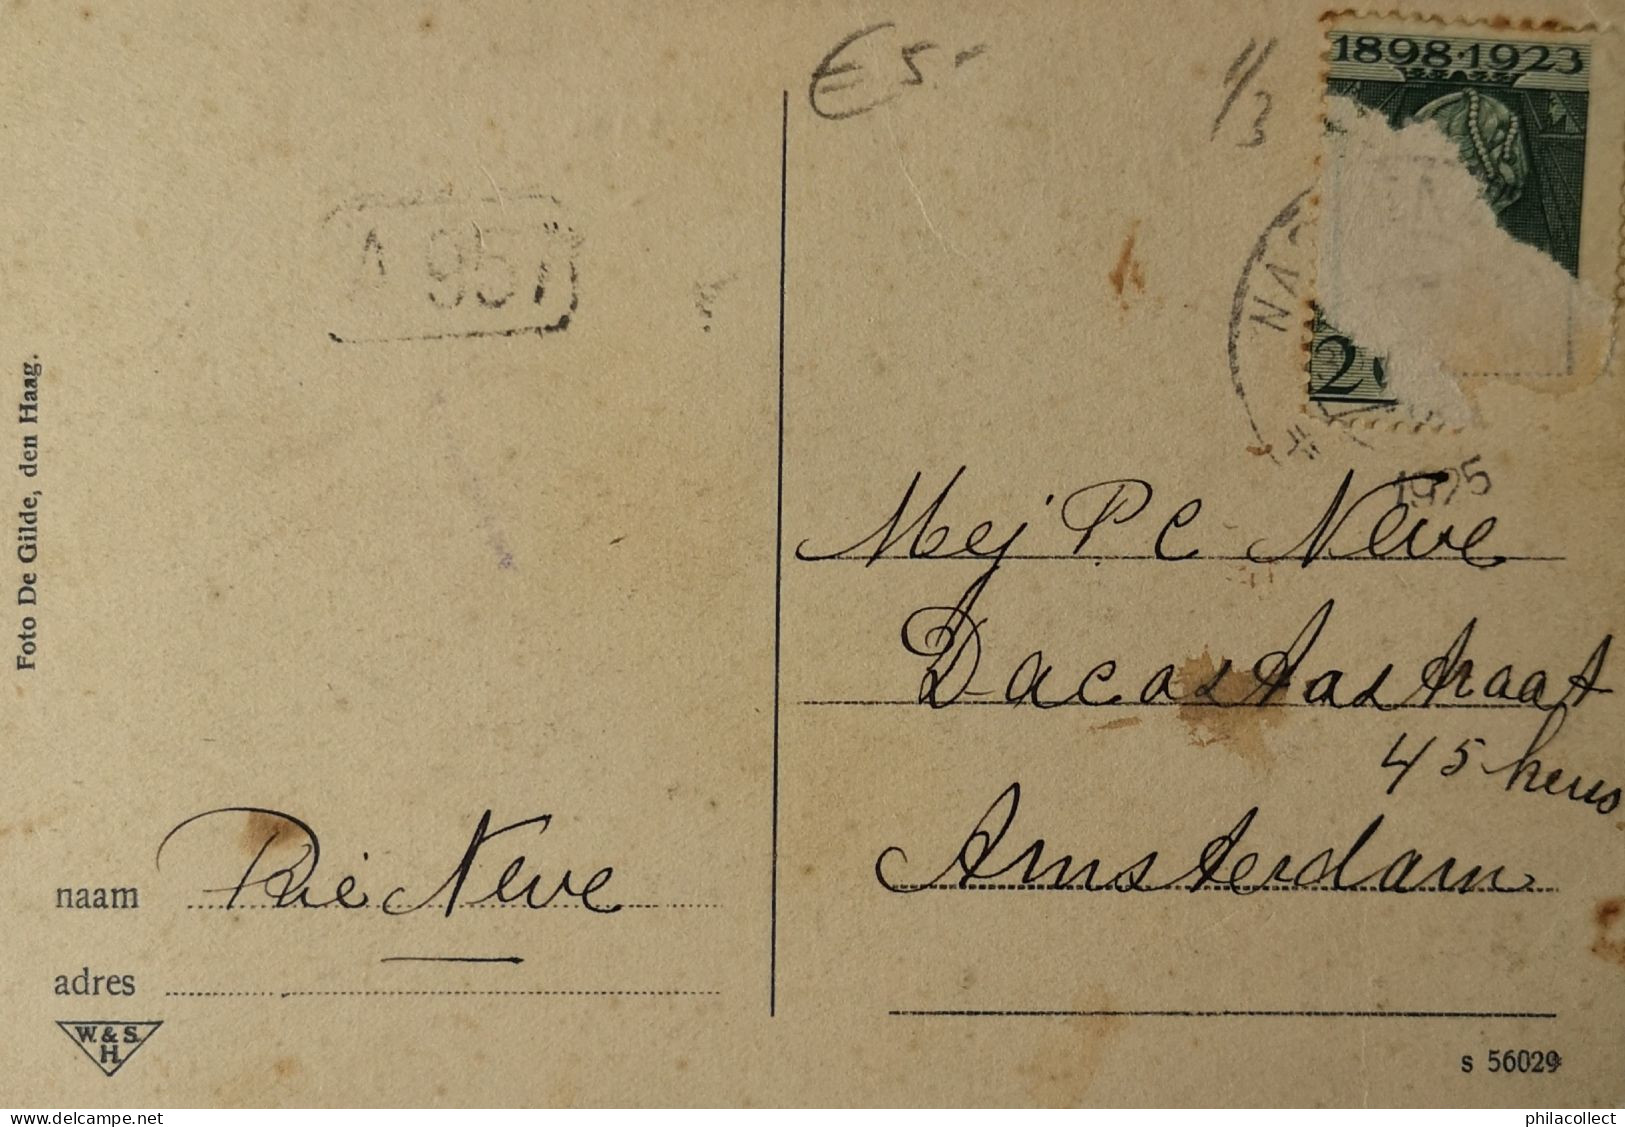 € 5.-
1/3
1898·1923
A 957
NA
2
1925
Foto De Gilde, den Haag.
Mej P. C Neve
Dacostastraat
45 huis
Amsterdam
naam Rie Neve
adres
W. & S.
H.
s 56029
philacollect